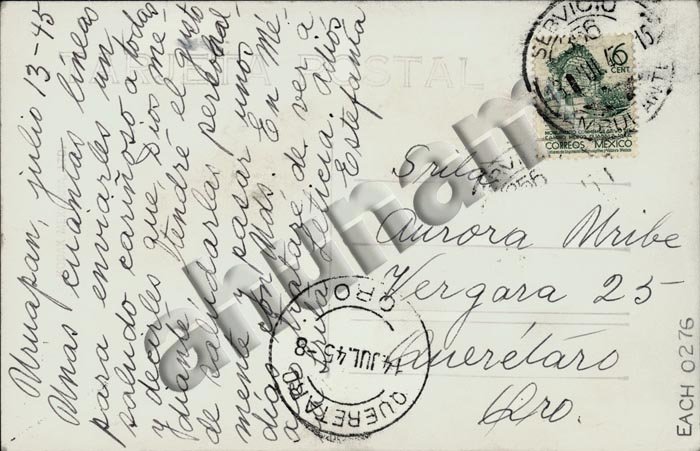 TARJETA POSTAL
Uruapan, julio 13-45
Unas cuantas líneas
para enviarles un
saludo cariñoso a todas
y decirles que, Dios me-
diante, tendré el gusto
de saludarlas personal
mente y pasar unos
días con Uds. En Mé
trataré de ver a
Leticia. Adiós
Estefanía
SERVICIO
156
15
CENT.
CORREOS MÉXICO
Srita.
Aurora Uribe
Vergara 25
Querétaro
Qro.
QUERETARO
14 JUL.45-8
QRO
ahunam
EACH 0276